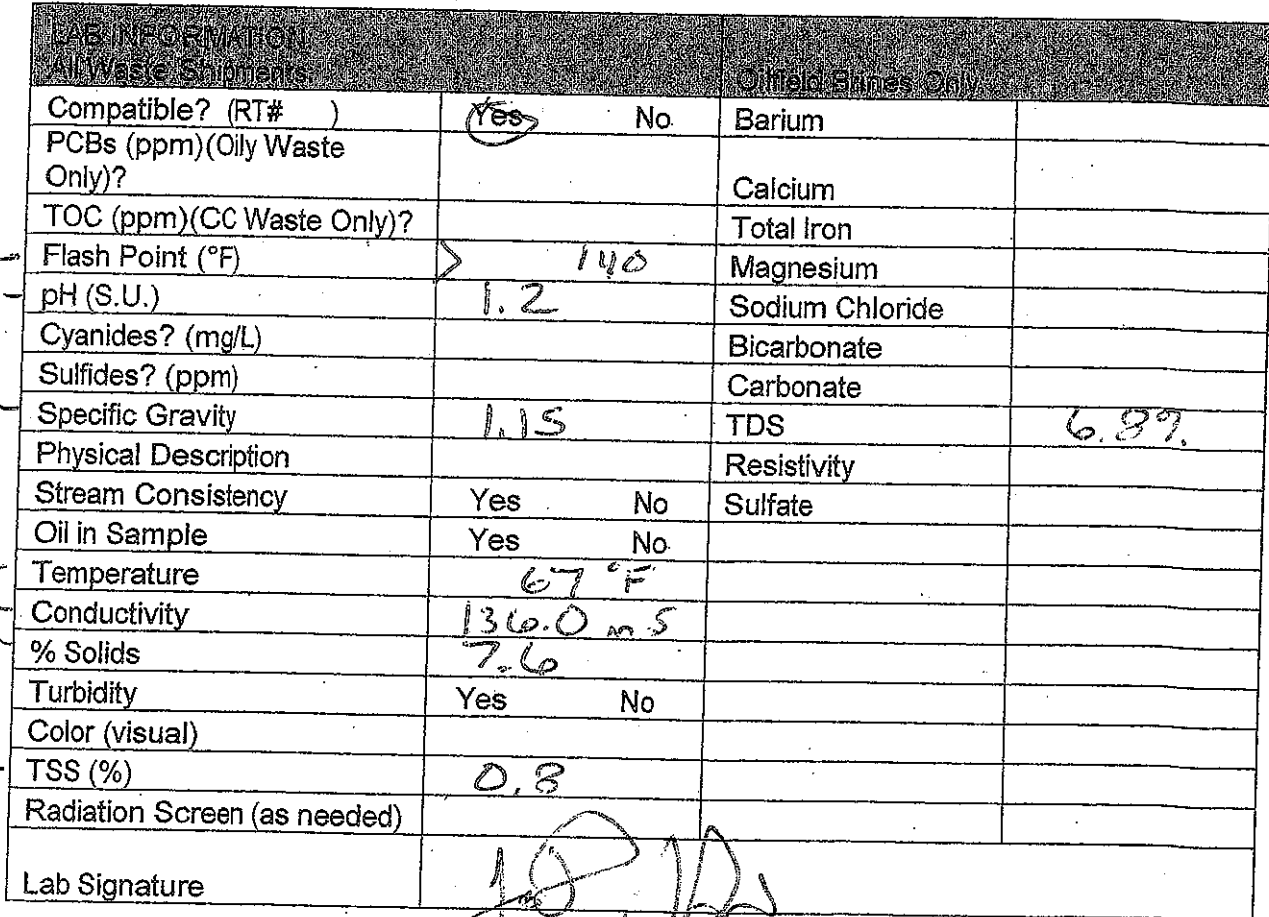 LAB INFORMATION
All Waste Shipments: Oilfield Brines Only
Compatible? (RT# ) Yes No Barium
PCBs (ppm)(Oily Waste
Only)? Calcium
TOC (ppm)(CC Waste Only)? Total Iron
Flash Point (°F) > 140 Magnesium
pH (S.U.) 1.2 Sodium Chloride
Cyanides? (mg/L) Bicarbonate
Sulfides? (ppm) Carbonate
Specific Gravity 1.15 TDS 6.8%
Physical Description Resistivity
Stream Consistency Yes No Sulfate
Oil in Sample Yes No
Temperature 67 °F
Conductivity 136.0 mS
% Solids 7.6
Turbidity Yes No
Color (visual)
TSS (%) 0.8
Radiation Screen (as needed)
Lab Signature